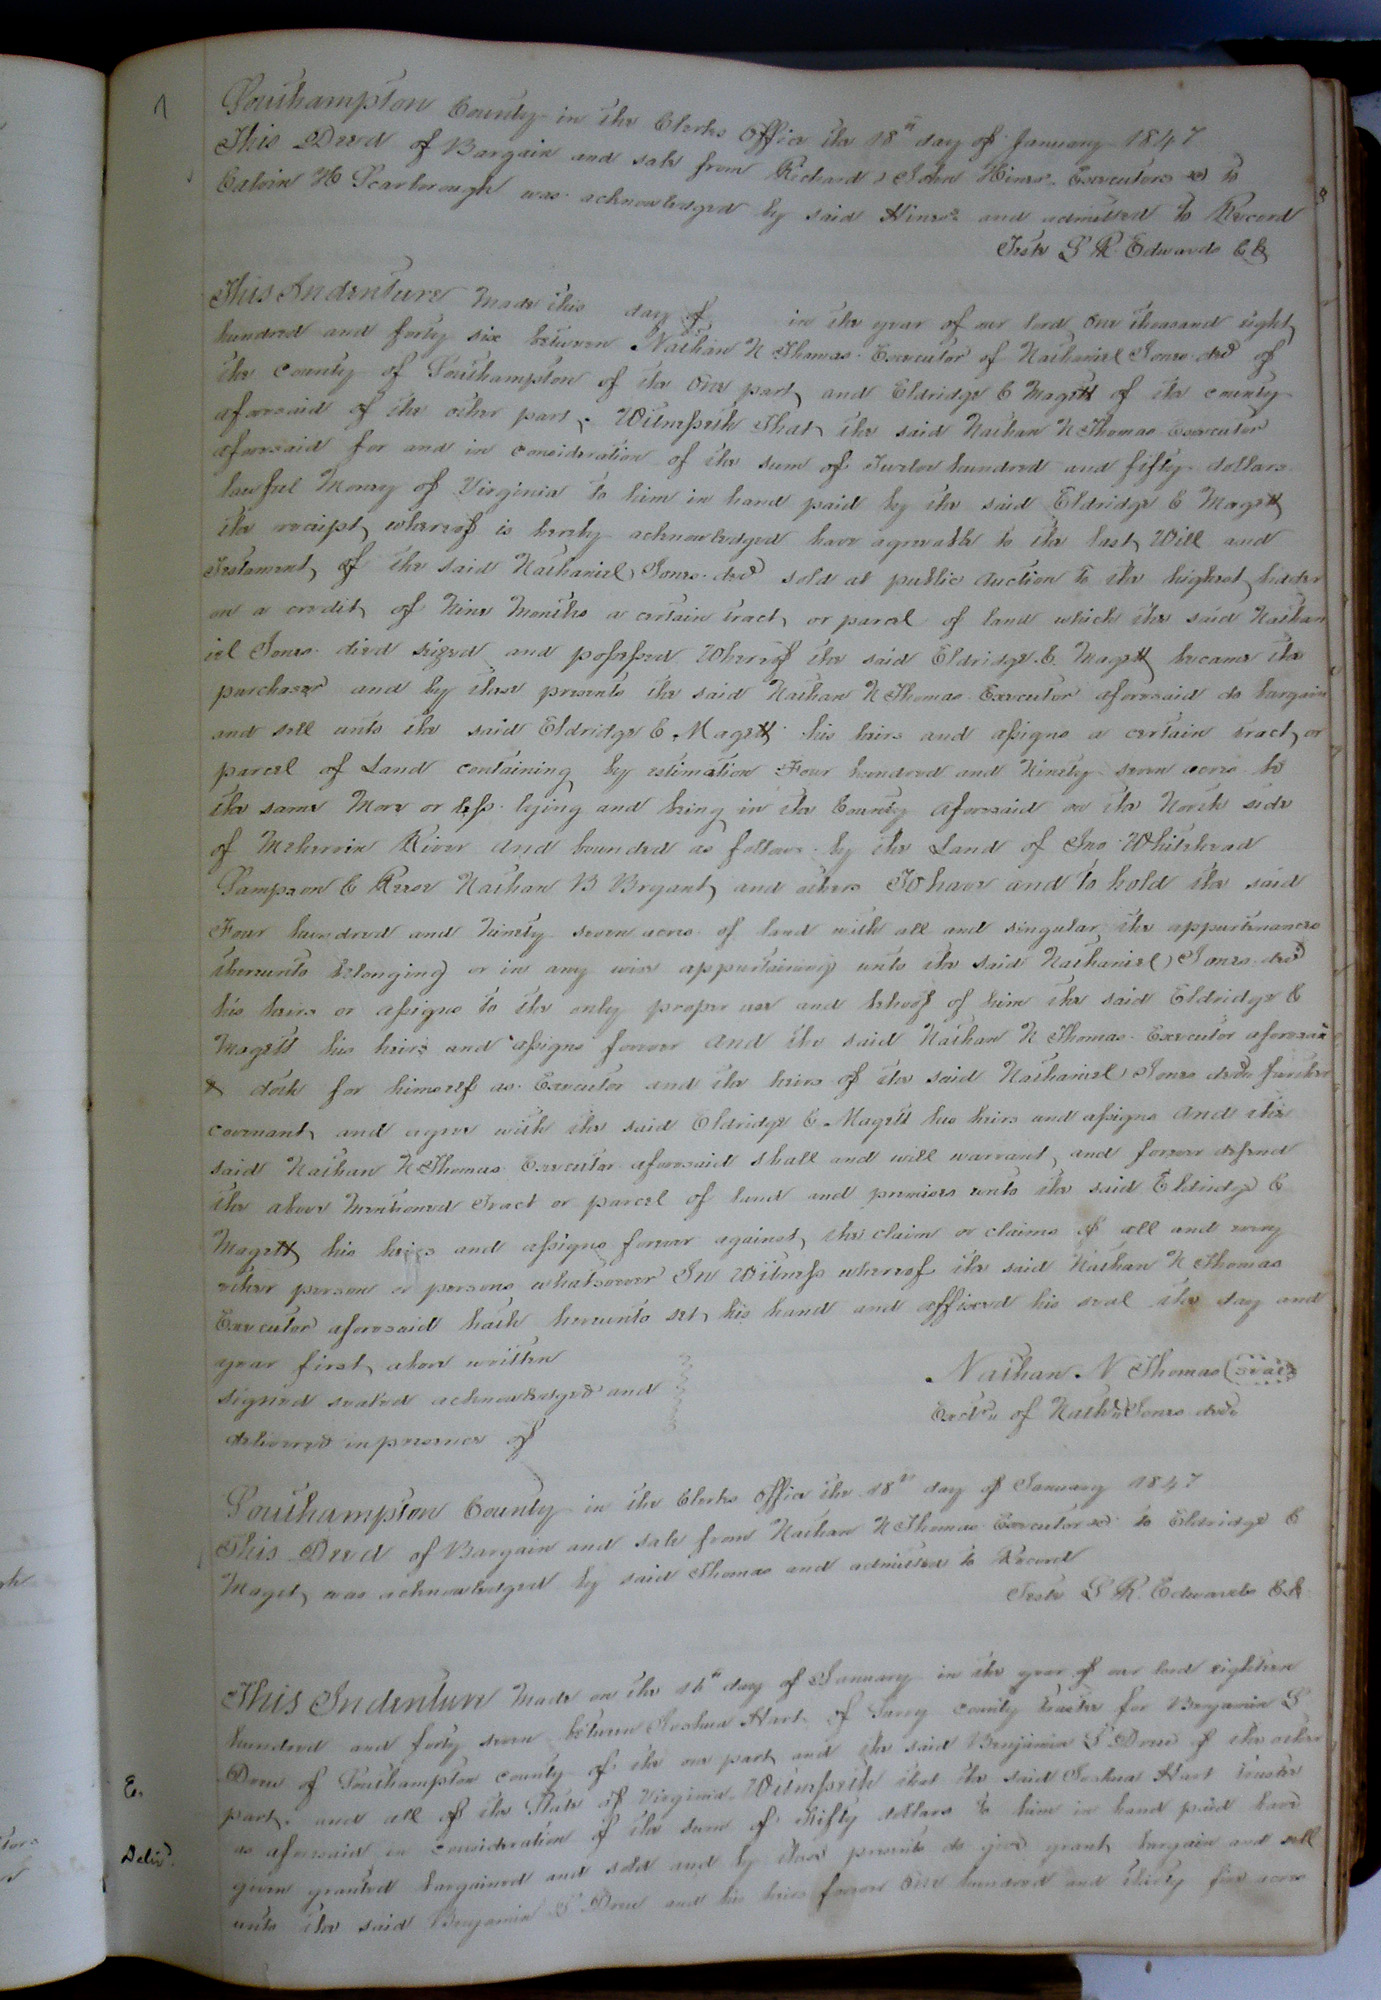 Southampton County in the Clerks Office the 18th day of January 1847
This Deed of Bargain and sale from Richard & John Hines Executors &c to
Calvin H Scarborough was acknowledged by said Hines and admitted to Record
Teste L R Edwards Ck
This Indenture Made this day of in the year of our lord One thousand eight
hundred and forty six between Nathan N Thomas Executor of Nathaniel Jones decd of
the County of Southampton of the One part and Eldridge C Magett of the county
aforesaid of the other part, Witnesseth That the said Nathan N Thomas Executor
aforesaid for and in consideration of the sum of Twelve hundred and fifty dollars
lawful Money of Virginia to him in hand paid by the said Eldridge C Magett
the receipt whereof is hereby acknowledged have agreeable to the last Will and
Testament of the said Nathaniel Jones decd sold at public Auction to the highest bidder
on a credit of Nine Months a certain tract or parcel of land which the said Nathan
iel Jones died seized and possessed Whereof the said Eldridge C. Magett became the
purchaser and by these presents the said Nathan N Thomas Executor aforesaid do bargain
and sell unto the said Eldridge C Magett his heirs and assigns a certain tract or
parcel of Land containing by estimation Four hundred and Ninety seven acres be
the same More or less lying and being in the County aforesaid on the North side
of Meherrin River and bounded as follows by the Land of Jno Whitehead
Sampson C Reese Nathan B Bryant and others To have and to hold the said
Four hundred and Ninety seven acres of land with all and singular the appurtenances
thereunto belonging or in any wise appurtaining unto the said Nathaniel Jones decd
his heirs or assigns to the only proper use and behoof of him the said Eldridge C
Magett his heirs and assigns forever And the said Nathan N Thomas Executor aforesai
d doth for himself as Executor and the heirs of the said Nathaniel Jones decd further
covenant and agree with the said Eldridge C Magett his heirs and assigns And the
said Nathan N Thomas Executor aforesaid shall and will warrant and forever defend
the above Mentioned Tract or parcel of land and premises unto the said Eldridge C
Magett his heirs and assigns forever against the claim or claims of all and every
other person or persons whatsoever In Witness whereof the said Nathan N Thomas
Executor aforesaid hath hereunto set his hand and affixed his seal the day and
year first above written
Nathan N Thomas (seal)
signed sealed acknowledged and
Exctr of Nathl Jones decd
delivered in presence of
Southampton County in the Clerks Office the 18th day of January 1847
This Deed of Bargain and sale from Nathan N Thomas Executor &c to Eldridge C
Maget was acknowledged by said Thomas and admitted to Record
Teste L R. Edwards Ck
This Indenture Made on the 16th day of January in the year of our lord eighteen
hundred and forty seven between Joshua Hart of Surry County trustee for Benjamin S
Drew of Southampton county of the one part and the said Benjamin S Drew of the other
E.
part, and all of the State of Virginia Witnesseth that the said Joshua Hart trustee
as aforesaid in consideration of the sum of fifty dollars to him in hand paid have
Delivd.
given granted bargained and sold and by these presents do give grant bargain and sell
unto the said Benjamin S Drew and his heirs forever One hundred and thirty five acres